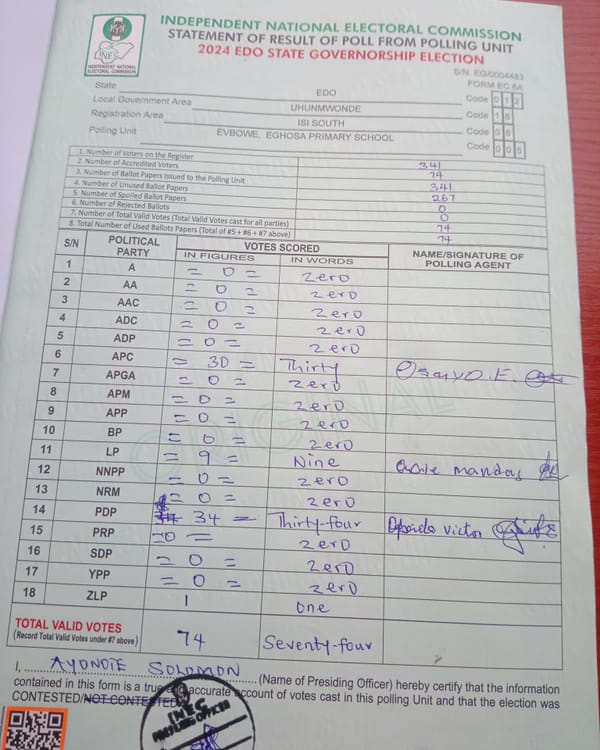 INDEPENDENT NATIONAL ELECTORAL COMMISSION
STATEMENT OF RESULT OF POLL FROM POLLING UNIT
2024 EDO STATE GOVERNORSHIP ELECTION
INEC
INDEPENDENT NATIONAL
ELECTORAL COMMISSION
S/N EG/0004483
FORM EC 8A
State EDO Code 0 1 2
Local Government Area UHUNMWONDE Code 1 8
Registration Area ISI SOUTH Code 0 8
Polling Unit EVBOWE, EGHOSA PRIMARY SCHOOL Code 0 0 5
1. Number of Voters on the Register 341
2. Number of Accredited Voters 74
3. Number of Ballot Papers Issued to the Polling Unit 341
4. Number of Unused Ballot Papers 267
5. Number of Spoiled Ballot Papers 0
6. Number of Rejected Ballots 0
7. Number of Total Valid Votes (Total Valid Votes cast for all parties) 74
8. Total Number of Used Ballots Papers (Total of #5 + #6 + #7 above) 74
S/N POLITICAL PARTY VOTES SCORED NAME/SIGNATURE OF POLLING AGENT
IN FIGURES IN WORDS
1 A = 0 = zero
2 AA = 0 = zero
3 AAC = 0 = zero
4 ADC = 0 = zero
5 ADP = 0 = zero
6 APC = 30 = Thirty
7 APGA = 0 = zero
8 APM = 0 = zero
9 APP = 0 = zero
10 BP = 0 = zero
11 LP = 9 = Nine
12 NNPP = 0 = zero
13 NRM = 0 = zero
14 PDP 34 = Thirty-four victor
15 PRP =0= zero
16 SDP = 0 = zero
17 YPP = 0 = zero
18 ZLP 1 one
ORIGINAL
TOTAL VALID VOTES 74 Seventy-four
(Record Total Valid Votes under #7 above)
I, AYONDIE SOLOMON (Name of Presiding Officer) hereby certify that the information
contained in this form is a true and accurate account of votes cast in this polling Unit and that the election was
CONTESTED/NOT CONTESTED
INEC
PRESIDING OFFICER